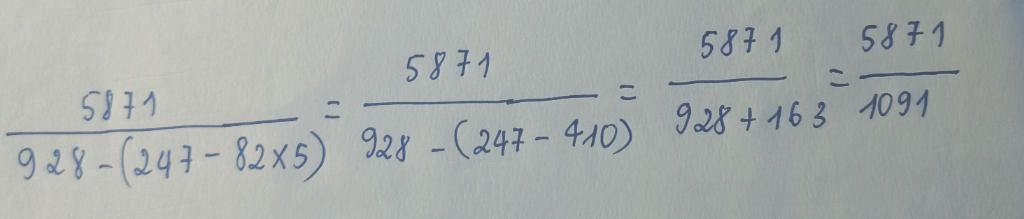 5871 / 928 - (247 - 82×5) = 5871 / 928 - (247 - 410) = 5871 / 928 + 163 = 5871 / 1091